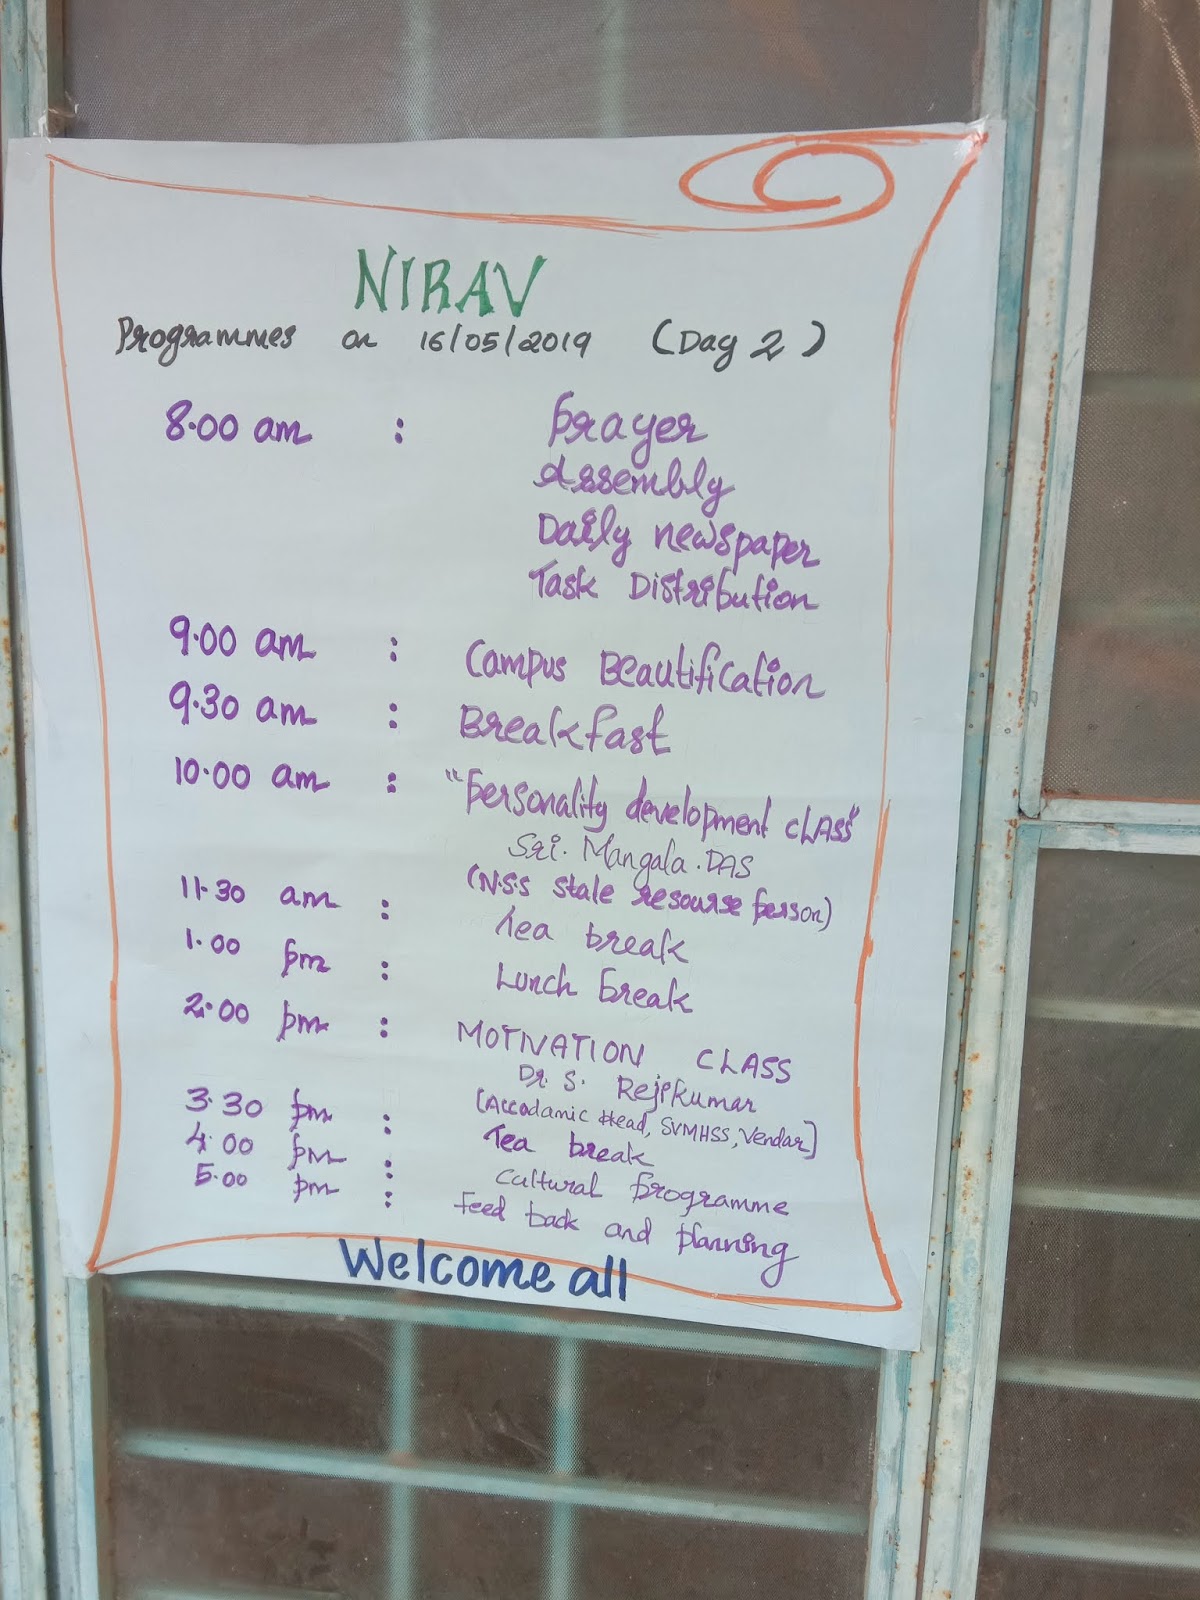 NIRAV
Programmes on 16/05/2019 (Day 2)
8.00 am : Prayer
Assembly
Daily newspaper
Task Distribution
9.00 am : Campus Beautification
9.30 am : Breakfast
10.00 am : "Personality development CLASS"
Sri. Mangala. DAS
(N.S.S stale resourse person)
11.30 am : Tea break
1.00 pm : Lunch break
2.00 pm : MOTIVATION CLASS
Dr. S. Rejikumar
[Accadamic Head, SVMHSS, Vendar]
3.30 pm : Tea break
4.00 pm : Cultural programme
5.00 pm : Feed back and planning
Welcome all